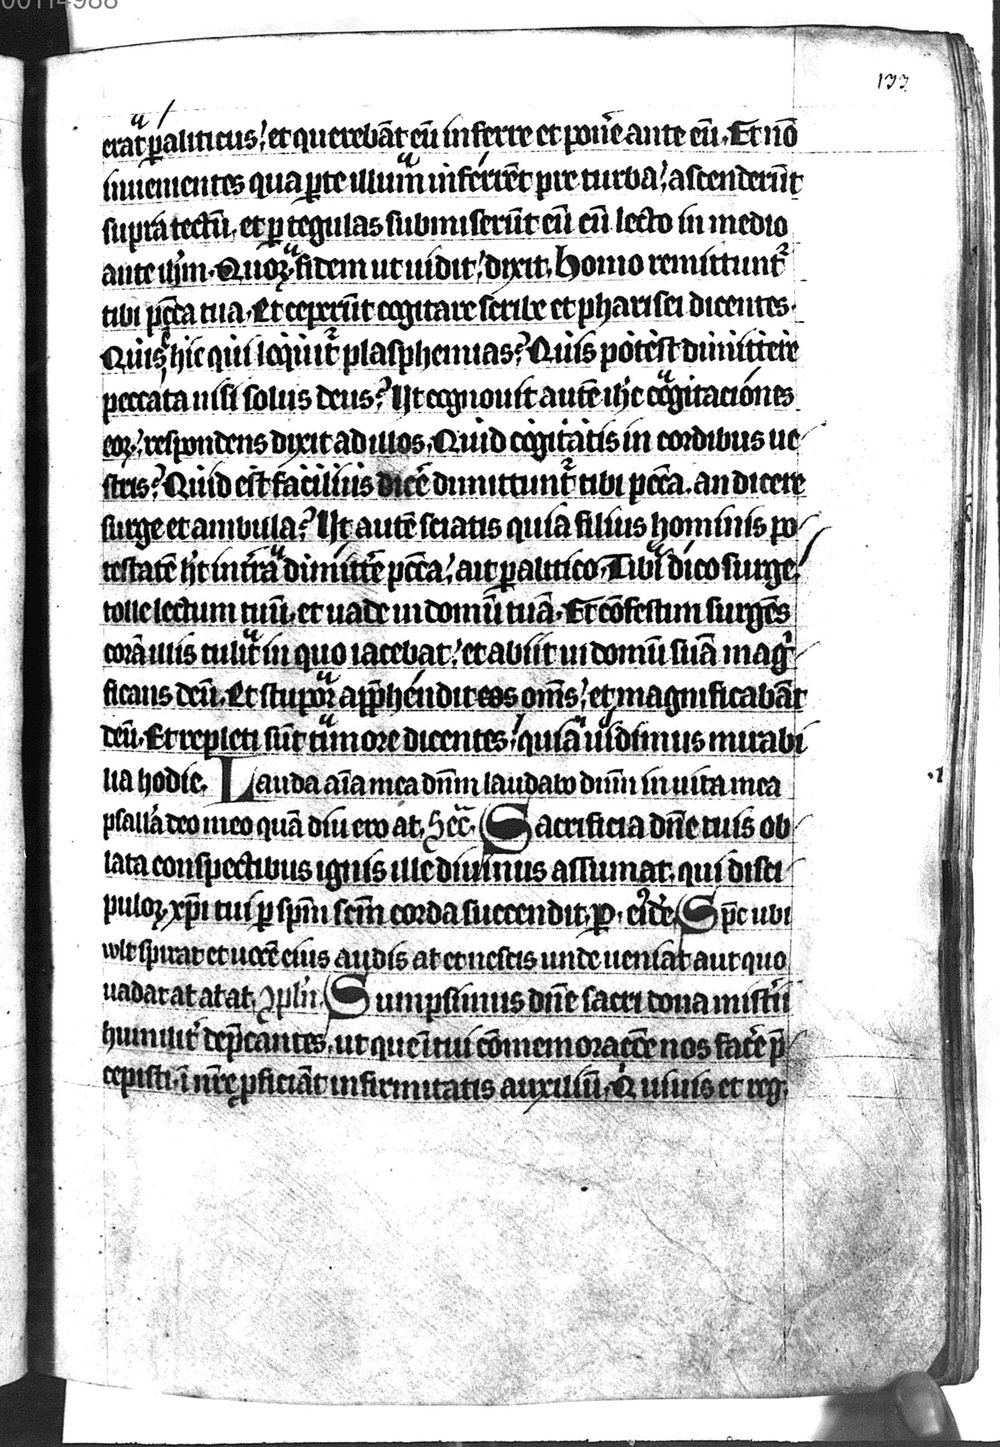 00114988
133
erāt paliticus, et querebāt eū inferre et pon̄e ante eū. Et nō
inuenientes qua parte illum inferrēt pre turba, ascenderūt
supra tectū, et p tegulas submiserūt eū cū lecto in medio
ante ihm. Quoꝝ fidem ut uidit, dixit. Homo remittunt̄
tibi pctā tua. Et ceperūt cogitare scribe et pharisei dicentes.
Quis ē hic qui loquit̄ plasphemias? Quis potest dimittere
peccata nisi solus deus? Ut cognouit autē ihc cogitaciones
eoꝝ, respondens dixit ad illos. Quid cogitatis in cordibus ue
stris? Quid est facilius dicē dimittunt̄ tibi pctā. an dicere
surge et ambula? Ut autē sciatis quia filius hominis po
testatē ht in tra dimittēe pctā, ait palitico. Tibi dico surge,
tolle lectum tuū. et uade in domū tuā. Et cōfestim surgēs
corā illis tulit in quo iacebat, et abiit in domū suā mag
ficans deū. Et stupor apphendit eos om̄s, et magnificabāt
deū. Et repleti sūt timore dicentes, quia uidimus mirabi
lia hodie. Lauda aīa mea dn̄m laudabo dn̄m in uita mea
psallā deo meo quā diu ero at. Sec̄. Sacrificia dn̄e tuis ob
lata conspectibus ignis ille diuinus assumat. qui disci
puloꝝ xp̄i tui p sp̄m scm̄ corda succendit. p. eīdē. Sp̄c ubi
wlt spirat et uocē eius audis at et nescis unde ueniat aut quo
uadat at at at. ꝯplū. Sumpsimus dn̄e sacri dona misterii
humilit̄ dep̄cantes. ut que ī tui cōmemoracōe nos facē p̄
cepisti. ī nr̄ē pficiāt infirmitatis auxiliū. Qui uiuis et reg.